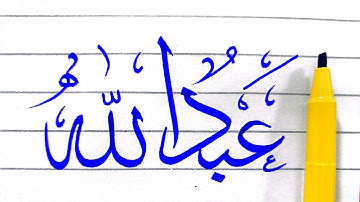 عبدُالله